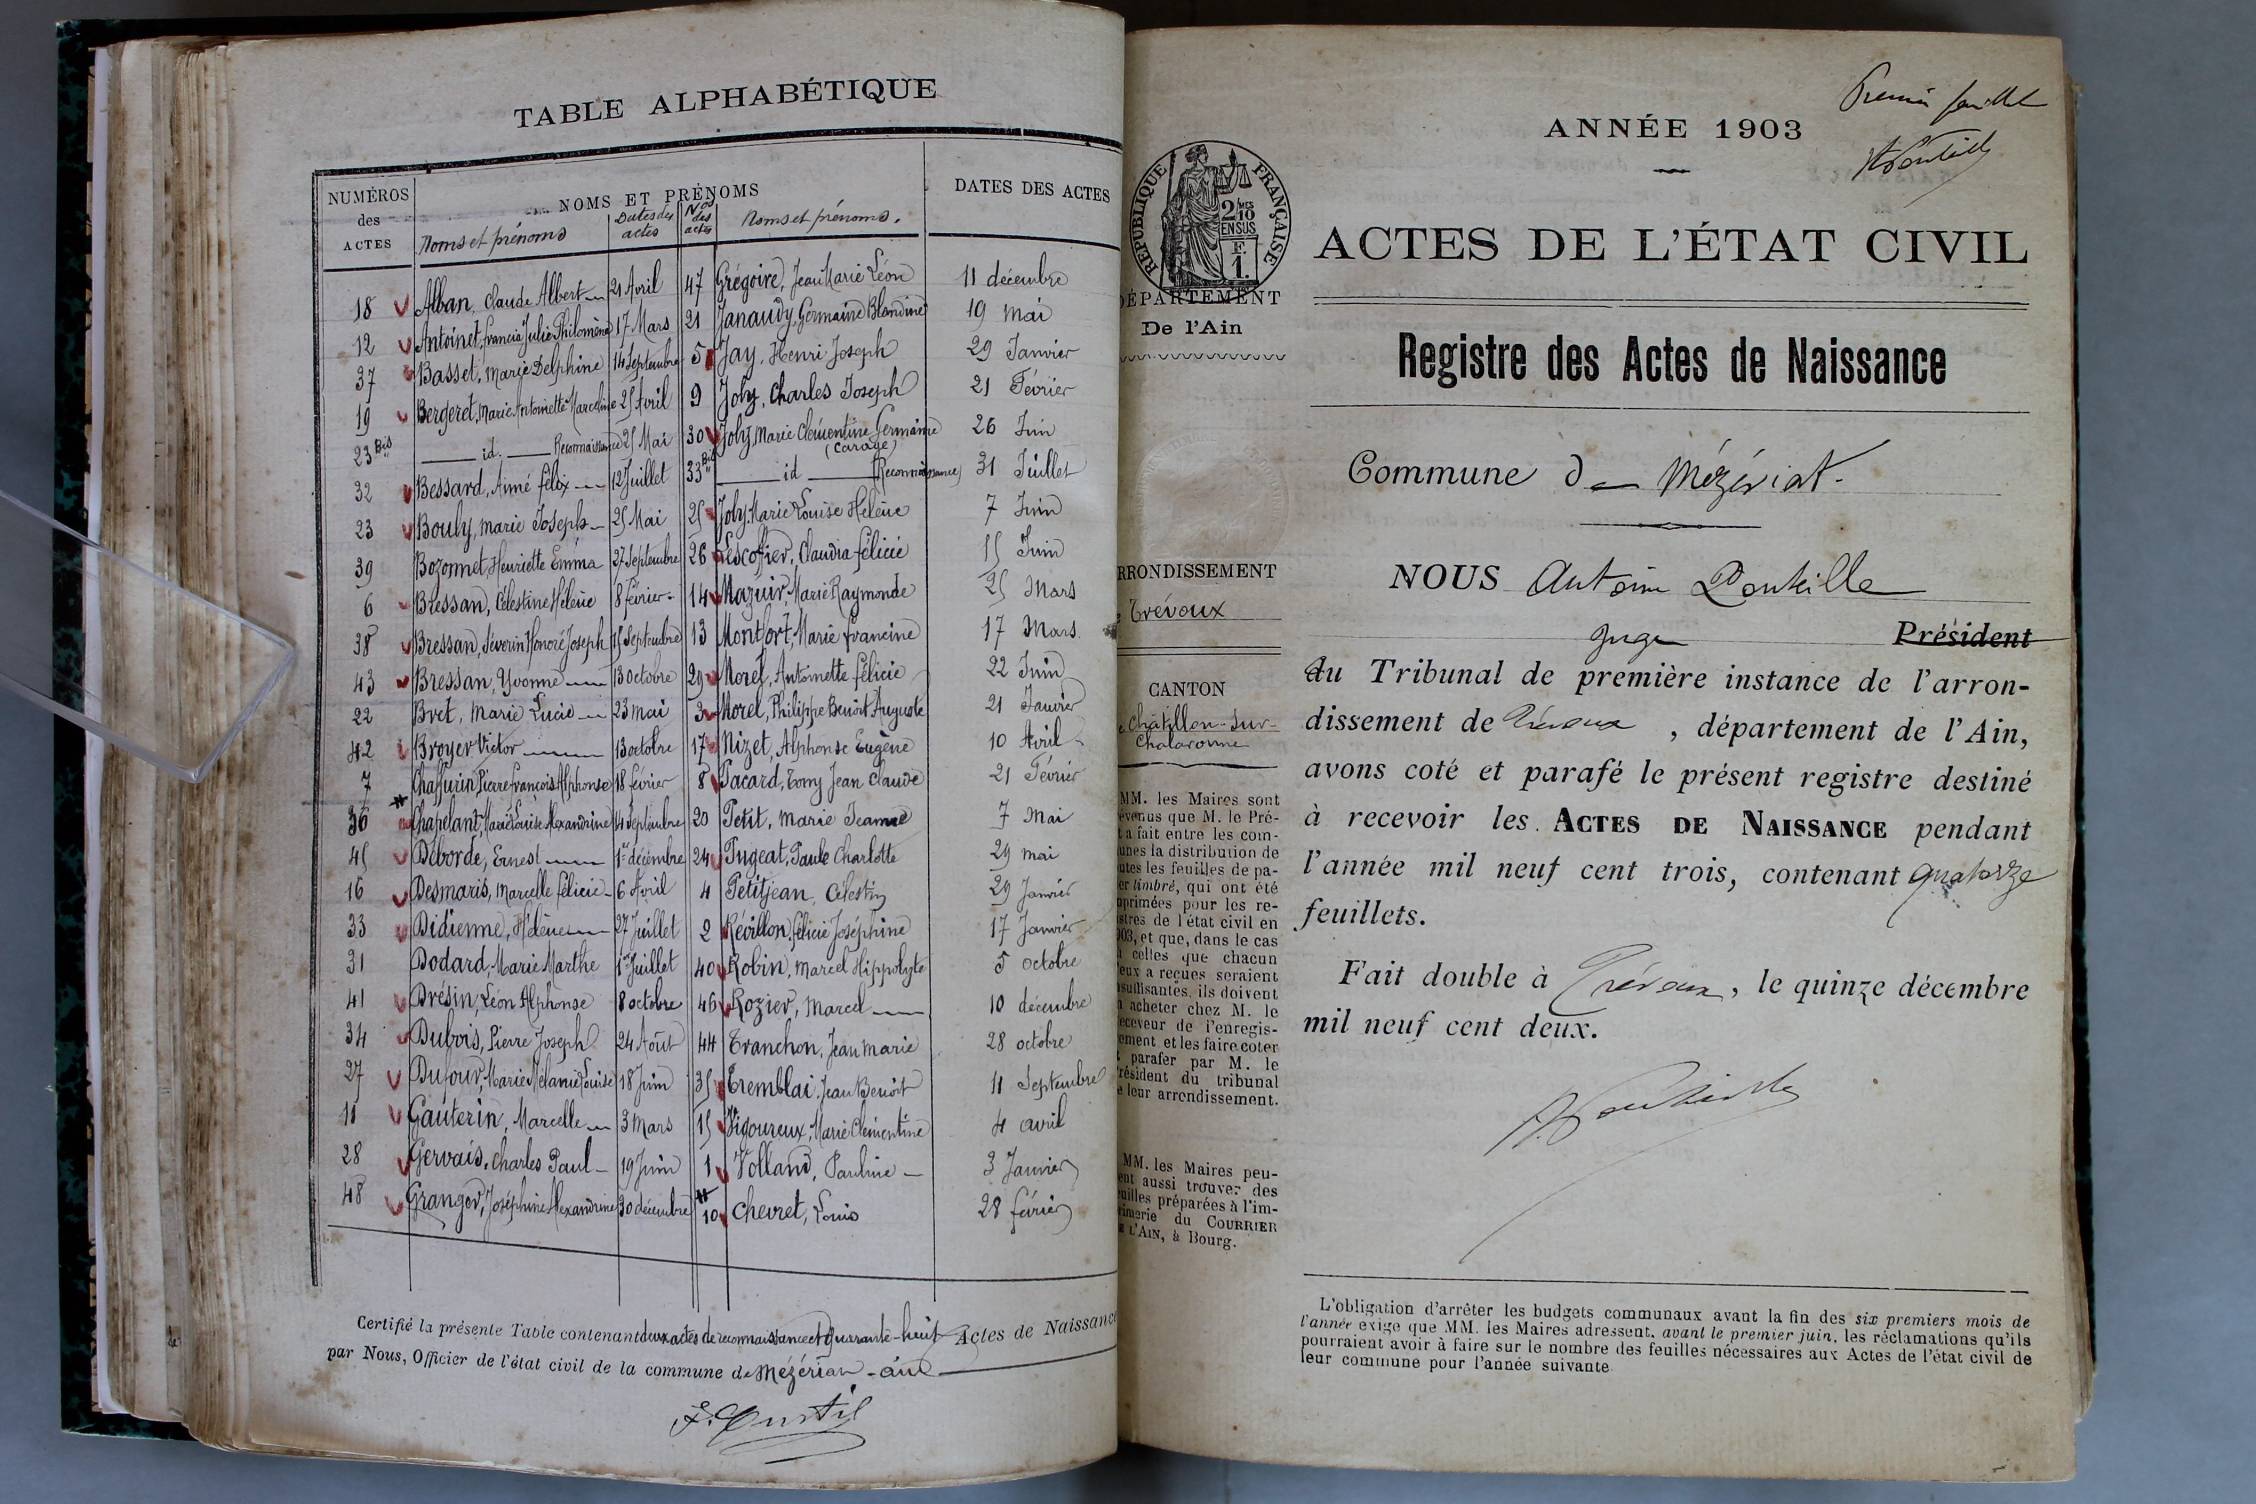 TABLE ALPHABÉTIQUE
NUMÉROS des ACTES
NOMS ET PRÉNOMS
DATES DES ACTES
Noms et prénoms
Dates des actes
Nos des actes
Noms et prénoms.
18 Alban, Claude Albert 21 Avril 47 Grégoire, Jean Marie Léon 11 décembre
12 Antoinet, francia Julie Philomène 17 Mars 21 Janaudy, Germaine Blandine 19 Mai
37 Basset, Marie Delphine 14 Septembre 5 Jay, Henri Joseph 29 Janvier
19 Bergeret, Marie Antoinette Marceline 25 Avril 9 Joly, Charles Joseph 21 Février
23 Bis id. Reconnaissance 25 Mai 30 Joly, Marie Clémentine Germaine 26 Juin
32 Bessard, Aimé félix 12 Juillet 33 Bis id (Reconnaissance) 31 Juillet
23 Bouly, Marie Joseph 25 Mai 25 Joly, Marie Louise Hélène 7 Juin
39 Bozonnet, Henriette Emma 27 Septembre 26 Lescoffier, Claudia félicie 15 Juin
6 Bressan, Célestine Hélène 8 février 14 Mazuir, Marie Raymonde 25 Mars
38 Bressan, Séverin Honoré Joseph 15 Septembre 13 Montfort, Marie francine 17 Mars
43 Bressan, Yvonne 13 octobre 29 Morel, Antoinette félicie 22 Juin
22 Bret, Marie Lucie 23 mai 3 Morel, Philippe Benoît Auguste 21 Janvier
42 Broyer Victor 13 octobre 17 Nizet, Alphonse Eugène 10 Avril
7 Chaffurin Pierre françois Alphonse 18 février 8 Pacard, Tony Jean Claude 21 Février
36 Chapelant, Marie Louise Alexandrine 14 Septembre 20 Petit, Marie Jeanne 7 Mai
45 Déborde, Ernest 1er décembre 24 Pugeat, Paule Charlotte 29 mai
16 Desmaris, Marcelle félicie 6 Avril 4 Petitjean, Célestin 29 Janvier
33 Didienne, Hélène 27 Juillet 2 Révillon, félicie Joséphine 17 Janvier
31 Dodard, Marie Marthe 1er Juillet 40 Robin, Marcel Hippolyte 5 octobre
41 Drésin, Léon Alphonse 8 octobre 46 Rozier, Marcel 10 décembre
34 Dubois, Pierre Joseph 24 Août 44 Tranchon, Jean Marie 28 octobre
27 Dufour, Marie Mélanie Louise 18 Juin 35 Tremblai, Jean Benoît 11 Septembre
11 Gauterin, Marcelle 3 Mars 15 Vigoureux, Marie Clémentine 4 avril
28 Gervais, Charles Paul 19 Juin 1 Volland, Pauline 3 Janvier
48 Granger, Joséphine Alexandrine 30 décembre 10 Chevret, Louis 28 février
Certifié la présente Table contenant deux actes de reconnaissance et Quarante-huit Actes de Naissance
par Nous, Officier de l'état civil de la commune de Mézériat - ain
Premier feuillet
ANNÉE 1903
RÉPUBLIQUE FRANÇAISE
2/10 MES EN SUS
F. 1.
ACTES DE L'ÉTAT CIVIL
DÉPARTEMENT
De l'Ain
Registre des Actes de Naissance
Commune de Mézériat.
RRONDISSEMENT
Trévoux
NOUS Antoine Ponteille
juge Président
du Tribunal de première instance de l'arron-
dissement de Trévoux, département de l'Ain,
avons coté et parafé le présent registre destiné
à recevoir les ACTES DE NAISSANCE pendant
l'année mil neuf cent trois, contenant quatorze
feuillets.
Fait double à Trévoux, le quinze décembre
mil neuf cent deux.
CANTON
Châtillon-sur-
Chalaronne
MM. les Maires sont
évenus que M. le Pré-
t a fait entre les com-
unes la distribution de
utes les feuilles de pa-
er timbré, qui ont été
primées pour les re-
stres de l'état civil en
903, et que, dans le cas
celles que chacun
eux a reçues seraient
suffisantes, ils doivent
acheter chez M. le
eceveur de l'enregis-
ement et les faire coter
parafer par M. le
résident du tribunal
e leur arrondissement.
MM. les Maires peu-
ent aussi trouver des
uilles préparées à l'im-
rimerie du COURRIER
L'AIN, à Bourg.
L'obligation d'arrêter les budgets communaux avant la fin des six premiers mois de
l'année exige que MM. les Maires adressent, avant le premier juin, les réclamations qu'ils
pourraient avoir à faire sur le nombre des feuilles nécessaires aux Actes de l'état civil de
leur commune pour l'année suivante.